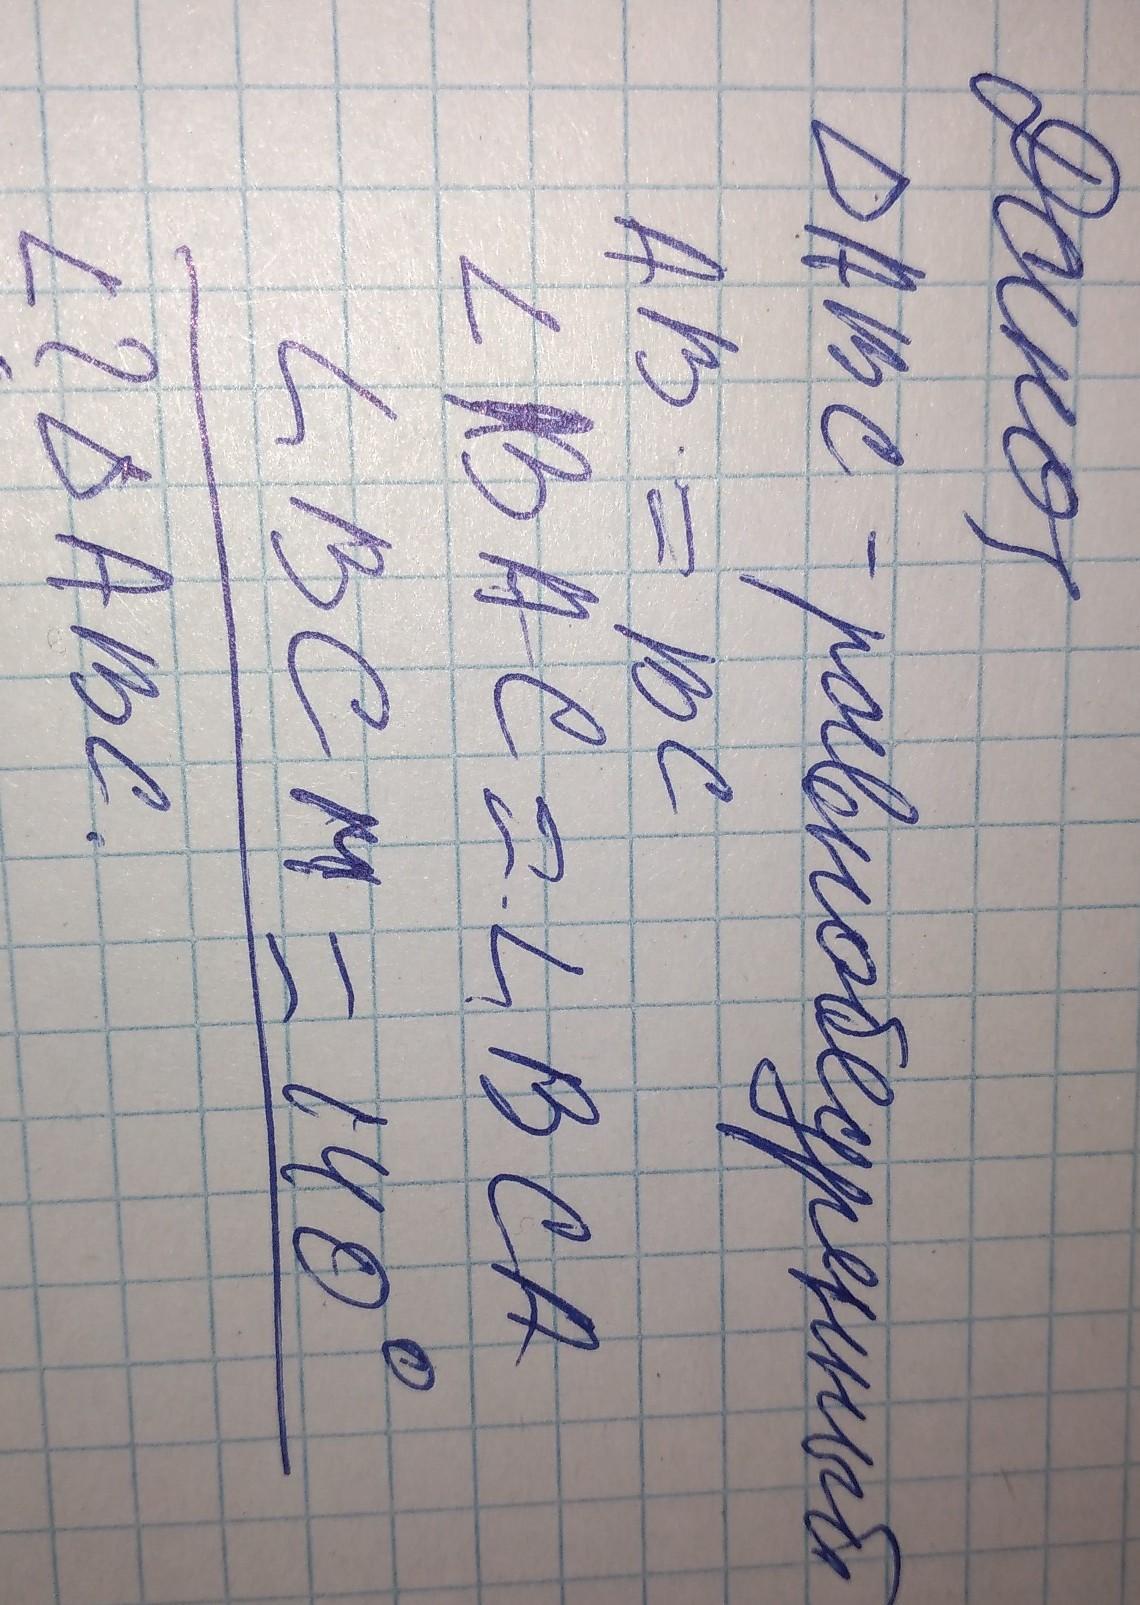 Дано:
ΔABC - равнобедренный
AB = BC
∠BAC = ∠BCA
∠BCM = 140°
∠? ΔABC.